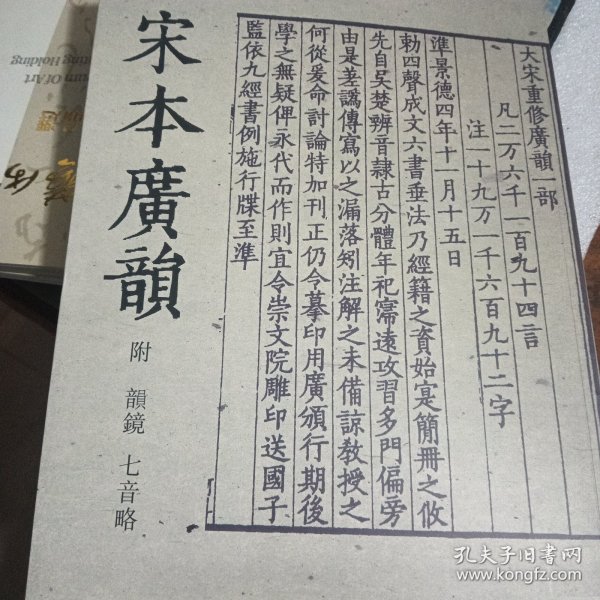 宋本廣韻
附 韻鏡 七音略
大宋重修廣韻一部
凡二万六千一百九十四言
注一十九万一千六百九十二字
準景德四年十一月十五日
勑四聲成文六書垂法乃經籍之資始寔簡冊之攸
先自吳楚辨音隷古分體年祀寖遠攻習多門偏旁
由是差譌傳寫以之漏落矧注解之未備諒教授之
何從爰命討論特加刊正仍令摹印用廣頒行期後
學之無疑俾永代而作則宜令崇文院雕印送國子
監依九經書例施行牒至準
um Of Art
ting Holding
孔夫子旧书网
www.kongfz.com